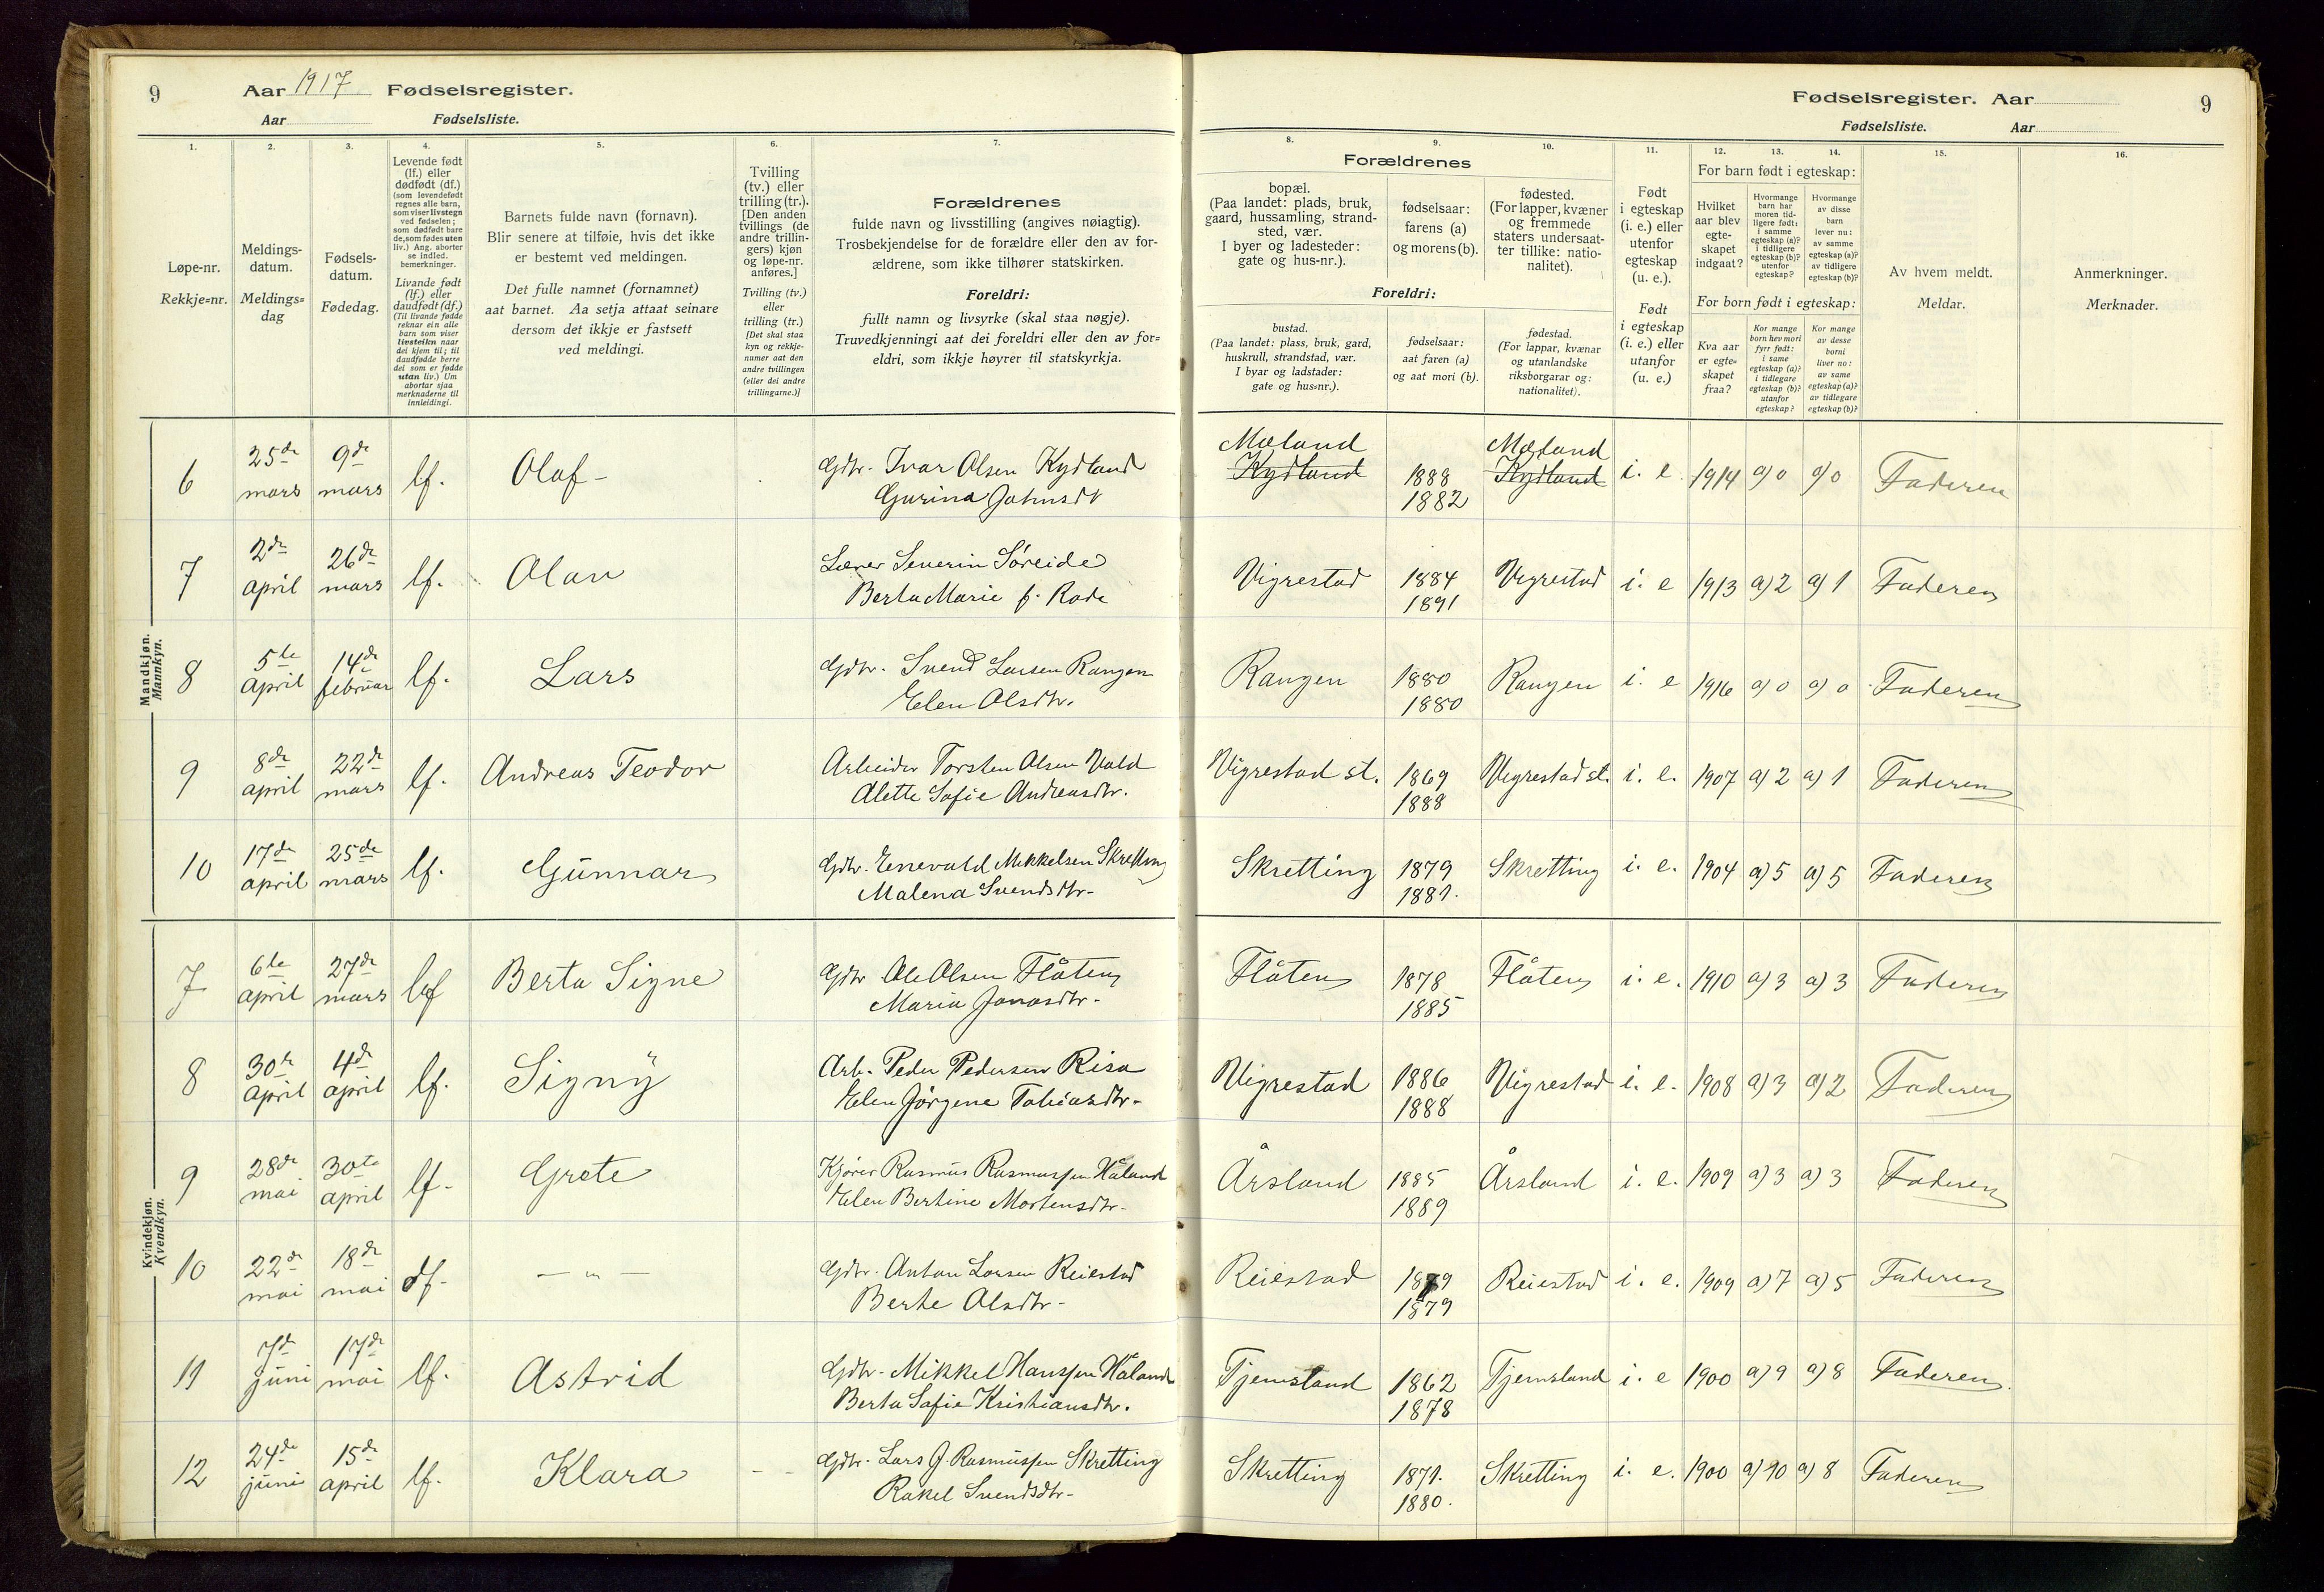 9
Aar 1917 Fødselsregister.
Aar Fødselsliste.
Fødselsregister. Aar
9
Fødselsliste. Aar
1.
Løpe-nr.
Rekkje=nr.
2.
Meldings-
datum.
Meldings=
dag
3.
Fødsels-
datum.
Fødedag.
4.
Levende født
(lf.) eller
dødfødt (df.)
(som levendefødt
regnes alle barn,
som viser livstegn
ved fødselen;
som dødfødt bare
de, som fødes uten
liv.) Ang. aborter
se indled.
bemerkninger.
Livande født
(lf.) eller
daudfødt (df.)
(Til livande fødde
reknar ein alle
barn som viser
livsteikn naar
dei kjem til; til
daudfødde berre
dei som er fødde
utan liv.) Um
abortar sjaa
merknaderne til
innleidingi.
5.
Barnets fulde navn (fornavn).
Blir senere at tilføie, hvis det ikke
er bestemt ved meldingen.
Det fulle namnet (fornamnet)
aat barnet. Aa setja attaat seinare
dersom det ikkje er fastsett
ved meldingi.
6.
Tvilling
(tv.) eller
trilling (tr.).
[Den anden
tvillings (de
andre trillin-
gers) kjøn
og løpe-nr.
anføres.]
Tvilling (tv.)
eller
trilling (tr.)
[Det skal staa
kyn og rekkje-
numer aat den
andre tvillingen
(eller dei andre
trillingarne.)]
7.
Forældrenes
fulde navn og livsstilling (angives nøiagtig).
Trosbekjendelse for de forældre eller den av for-
ældrene, som ikke tilhører statskirken.
Foreldri:
fullt namn og livsyrke (skal staa nøgje).
Truvedkjenningi aat dei foreldri eller den av for=
eldri, som ikkje høyrer til statskyrkja.
Forældrenes
8.
bopæl.
(Paa landet: plads, bruk,
gaard, hussamling, strand-
sted, vær.
I byer og ladesteder:
gate og hus-nr.).
9.
fødselsaar:
farens (a)
og morens (b).
10.
fødested.
(For lapper, kvæner
og fremmede
staters undersaat-
ter tillike: natio-
nalitet).
Foreldri:
bustad.
(Paa landet: plass, bruk, gard,
huskrull, strandstad, vær.
I byar og ladstader:
gate og hus=nr.).
fødselsaar:
aat faren (a)
og aat mori (b).
fødestad.
(For lappar, kvænar
og utanlandske
riksborgarar og:
nationalitet).
11.
Født
i egteskap
(i. e.) eller
utenfor
egteskap
(u. e.).
Født
i egteskap
(i. e.) eller
utanfor
(u. e.)
12. 13. 14.
For barn født i egteskap:
Hvilket
aar blev
egte-
skapet
indgaat?
Hvormange
barn har
moren tid-
ligere født:
i samme
egteskap (a)?
i tidligere
egteskap (b)?
utenfor
egteskap?
Hvormange
av disse
barn
lever nu:
av samme
egteskap (a)?
av tidligere
egteskap (b)?
For born født i egteskap:
Kva aar
er egte=
skapet
fraa?
Kor mange
born hev mori
fyrr født:
i same
egteskap (a)?
i tidlegare
egteskap (b)?
utanfor
egteskap?
Kor mange
av desse
borni
liver no:
av same
egteskap (a)?
av tidlegare
egteskap (b)?
15.
Av hvem meldt.
Meldar.
16.
Anmerkninger.
Merknader.
Mandkjøn.
Mannkyn.
6 25de mars 9de mars lf. Olaf - Gdbr. Ivar Olsen Kydland Mæland Mæland
Gurina Jahnsdt Kydland 1888 1882 Kydland i. e 1914 a) 0 a) 0 Faderen
7 2de april 26de mars lf. Olav Lærer Severin Søreide
Berta Marie f. Rode Vigrestad 1884 1891 Vigrestad i. e 1913 a) 2 a) 1 Faderen
8 5te april 14de februar lf. Lars Gdbr. Svend Larsen Rangen
Elen Olsdtr. Rangen 1880 1880 Rangen i. e 1916 a) 0 a) 0 Faderen
9 8de april 22de mars lf. Andreas Teodor Arbeider Torsten Olsen Vold
Alette Sofie Andreasdtr. Vigrestad st. 1869 1888 Vigrestad st. i. e. 1907 a) 2 a) 1 Faderen
10 17de april 25de mars lf. Gunnar Gdbr. Enevald Mikkelsen Skretting
Malena Svendsdtr- Skretting 1879 1881. Skretting i. e. 1904 a) 5 a) 5 Faderen
Kvindekjøn.
Kvendkyn.
7 6te april 27de mars lf Berta Signe Gdbr Ole Olsen Flåten
Maria Jonasdtr- Flåten 1878 1885 Flåten i. e. 1910 a) 3 a) 3 Faderen
8 30te april 4de april lf. Signÿ Arb. Peder Pedersen Risa
Elen Jørgene Tobiasdtr- Vigrestad 1886 1888 Vigrestad i. e. 1908 a) 3 a) 2 Faderen
9 28de mai 30te april lf- Grete Kjører Rasmus Rasmussen Håland
Elen Bertine Mortensdtr- Årsland 1885 1889 Årsland i. e. 1909 a) 3 a) 3 Faderen
10 22de mai 18de mai df- — " — Gdbr. Anton Larsen Reiestad
Berte Olsdtr- Reiestad 1879 1879 Reiestad i. e. 1909 a) 7 a) 5 Faderen
11 7de juni 17de mai lf. Astrid Gdbr- Mikkel Hanssen Håland
Berta Sofie Kristiansdtr. Tjemsland 1862 1878 Tjemsland i. e 1900 a) 9 a) 8 Faderen
12 24de juni 15de april lf. Klara - - Gdbr. Lars J. Rasmussen Skretting
Rakel Svendsdtr- Skretting 1871. 1880. Skretting i. e. 1900 a) 10 a) 8 Faderen